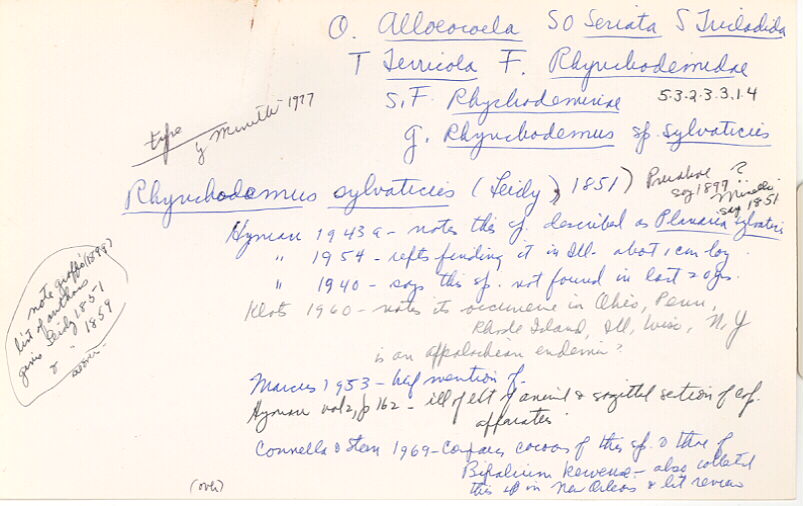 O. Alloeocoela SO Seriata S Tricladida
T Terricola F. Rhynchodemidae
S.F. Rhychodeminae 5.3.2.3.3.1.4
g. Rhynchodemus sp. sylvaticus
type
g Minelli 1977
Rhynchodemus sylvaticus (Leidy, 1851)
say 1899 ?
Minelli
say 1851
Hyman 1943a - notes this sp. described as Planaria sylvatica
" 1954 - repts finding it in Ill. about 1 cm long
" 1940 - says this sp. not found in last 20 yrs.
Klots 1960 - notes its occurrence in Ohio, Penn,
Rhode Island, Ill, Wisc, N.Y
is an appalachian endemic?
note Graff's (1899)
list of authors
gives Leidy 1851
& " 1859
over
Marcus 1953 - brief mention of
Hyman vol 2, p 162 - ill of ext of animal & sagittal section of cop.
apparatus
Connella & Stern 1969 - Compares cocoons of this sp. & those of
Bipalium kewense - also collected
this sp in New Orleans & lit review
(over)